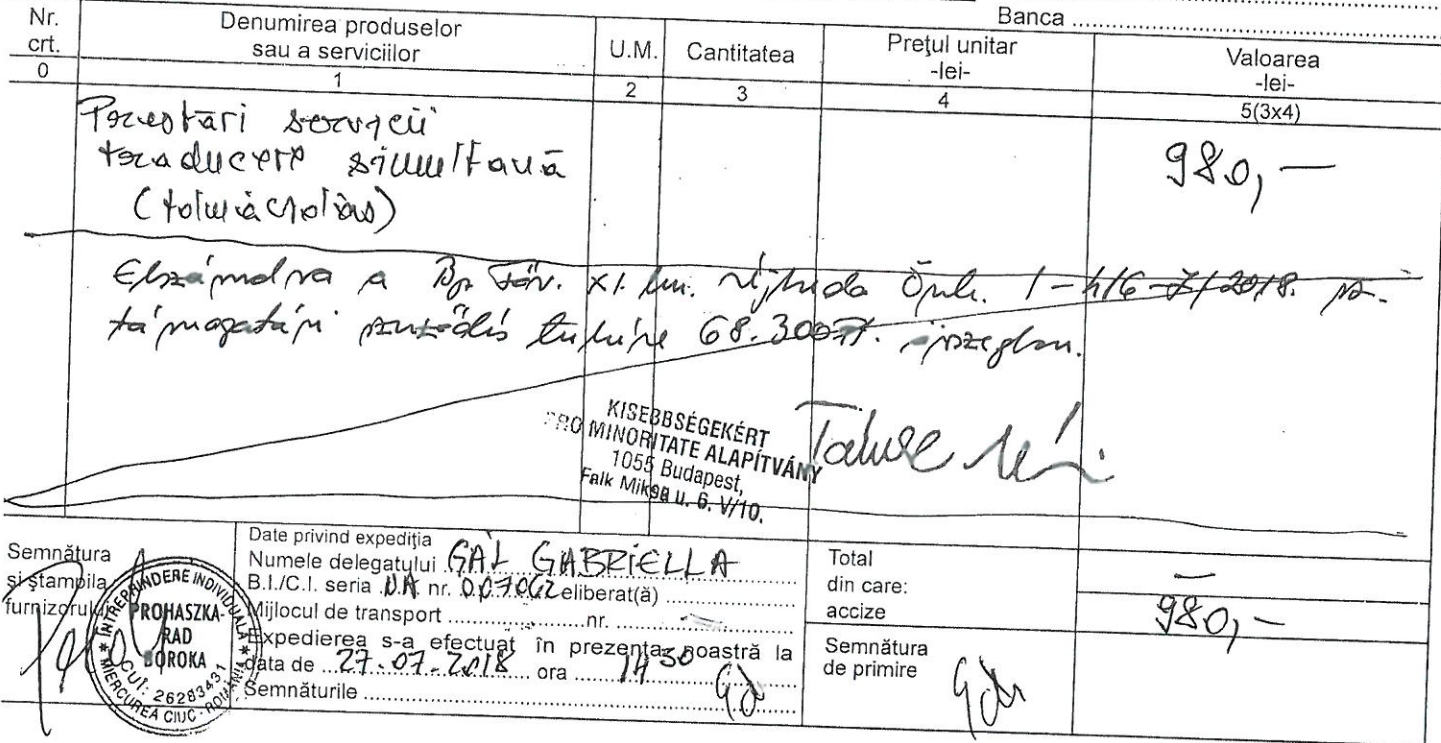 Banca
Nr. crt.
Denumirea produselor sau a serviciilor
U.M.
Cantitatea
Preţul unitar -lei-
Valoarea -lei-
0
1
2
3
4
5(3x4)
Prestări servicii
traducere simultană
(tolmácsolás)
980,—
Elszámolva a Bp. Főv. XI. ker. Újbuda Önk. 1-416-7/2018. sz.
támogatási szerződés terhére 68.300 Ft. összegben.
KISEBBSÉGEKÉRT
PRO MINORITATE ALAPÍTVÁNY
1055 Budapest,
Falk Miksa u. 6. V/10.
Semnătura
şi ştampila
furnizorului
ÎNTREPRINDERE INDIVIDUALĂ
PROHASZKA-
RAD
BOROKA
CUI: 26283431
MIERCUREA CIUC - ROMÂNIA
Date privind expediţia
Numele delegatului GÁL GABRIELLA
B.I./C.I. seria nr. 007062 eliberat(ă)
Mijlocul de transport nr. —
Expedierea s-a efectuat în prezenţa noastră la
data de 27.07.2018 ora 14 30
Semnăturile
Total
din care:
accize
—
980,—
Semnătura
de primire